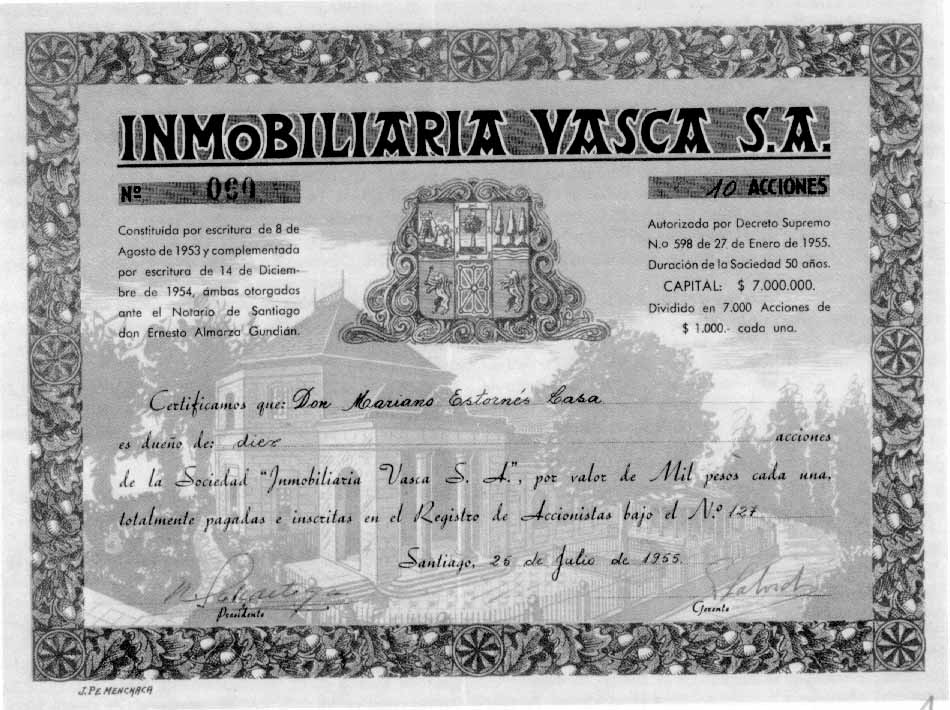 INMOBILIARIA VASCA S.A.
Nº 060
10 ACCIONES
Constituída por escritura de 8 de
Agosto de 1953 y complementada
por escritura de 14 de Diciem-
bre de 1954, ámbas otorgadas
ante el Notario de Santiago
don Ernesto Almarza Gundián.
Autorizada por Decreto Supremo
N.o 598 de 27 de Enero de 1955.
Duración de la Sociedad 50 años.
CAPITAL: $ 7.000.000.
Dividido en 7.000 Acciones de
$ 1.000.- cada una.
Certificamos que: Don Mariano Estornés Lasa
es dueño de: diez acciones
de la Sociedad "Inmobiliaria Vasca S. A.", por valor de Mil pesos cada una,
totalmente pagadas e inscritas en el Registro de Accionistas bajo el N.º 127
Santiago, 25 de Julio de 1955.
Presidente
Gerente
J. PE. MENCHACA